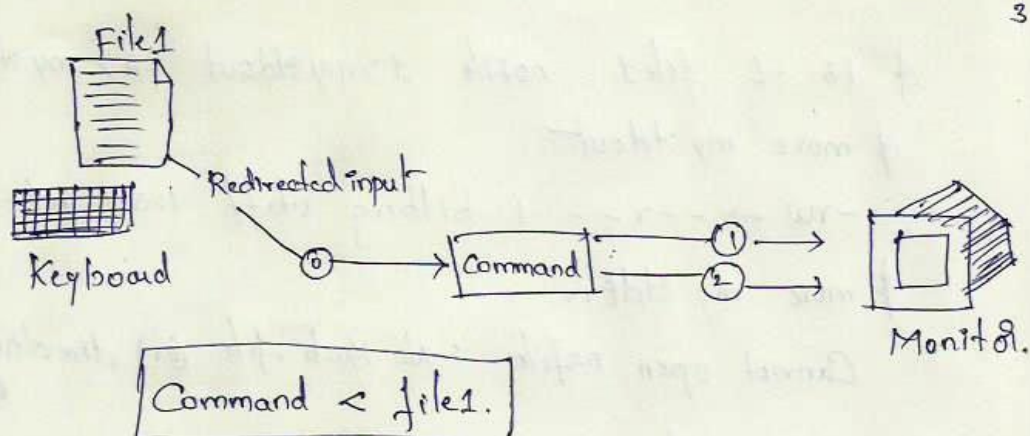 3
File1
Redirected input
Keyboard
0
Command
1
2
Monitor.
Command < file1.